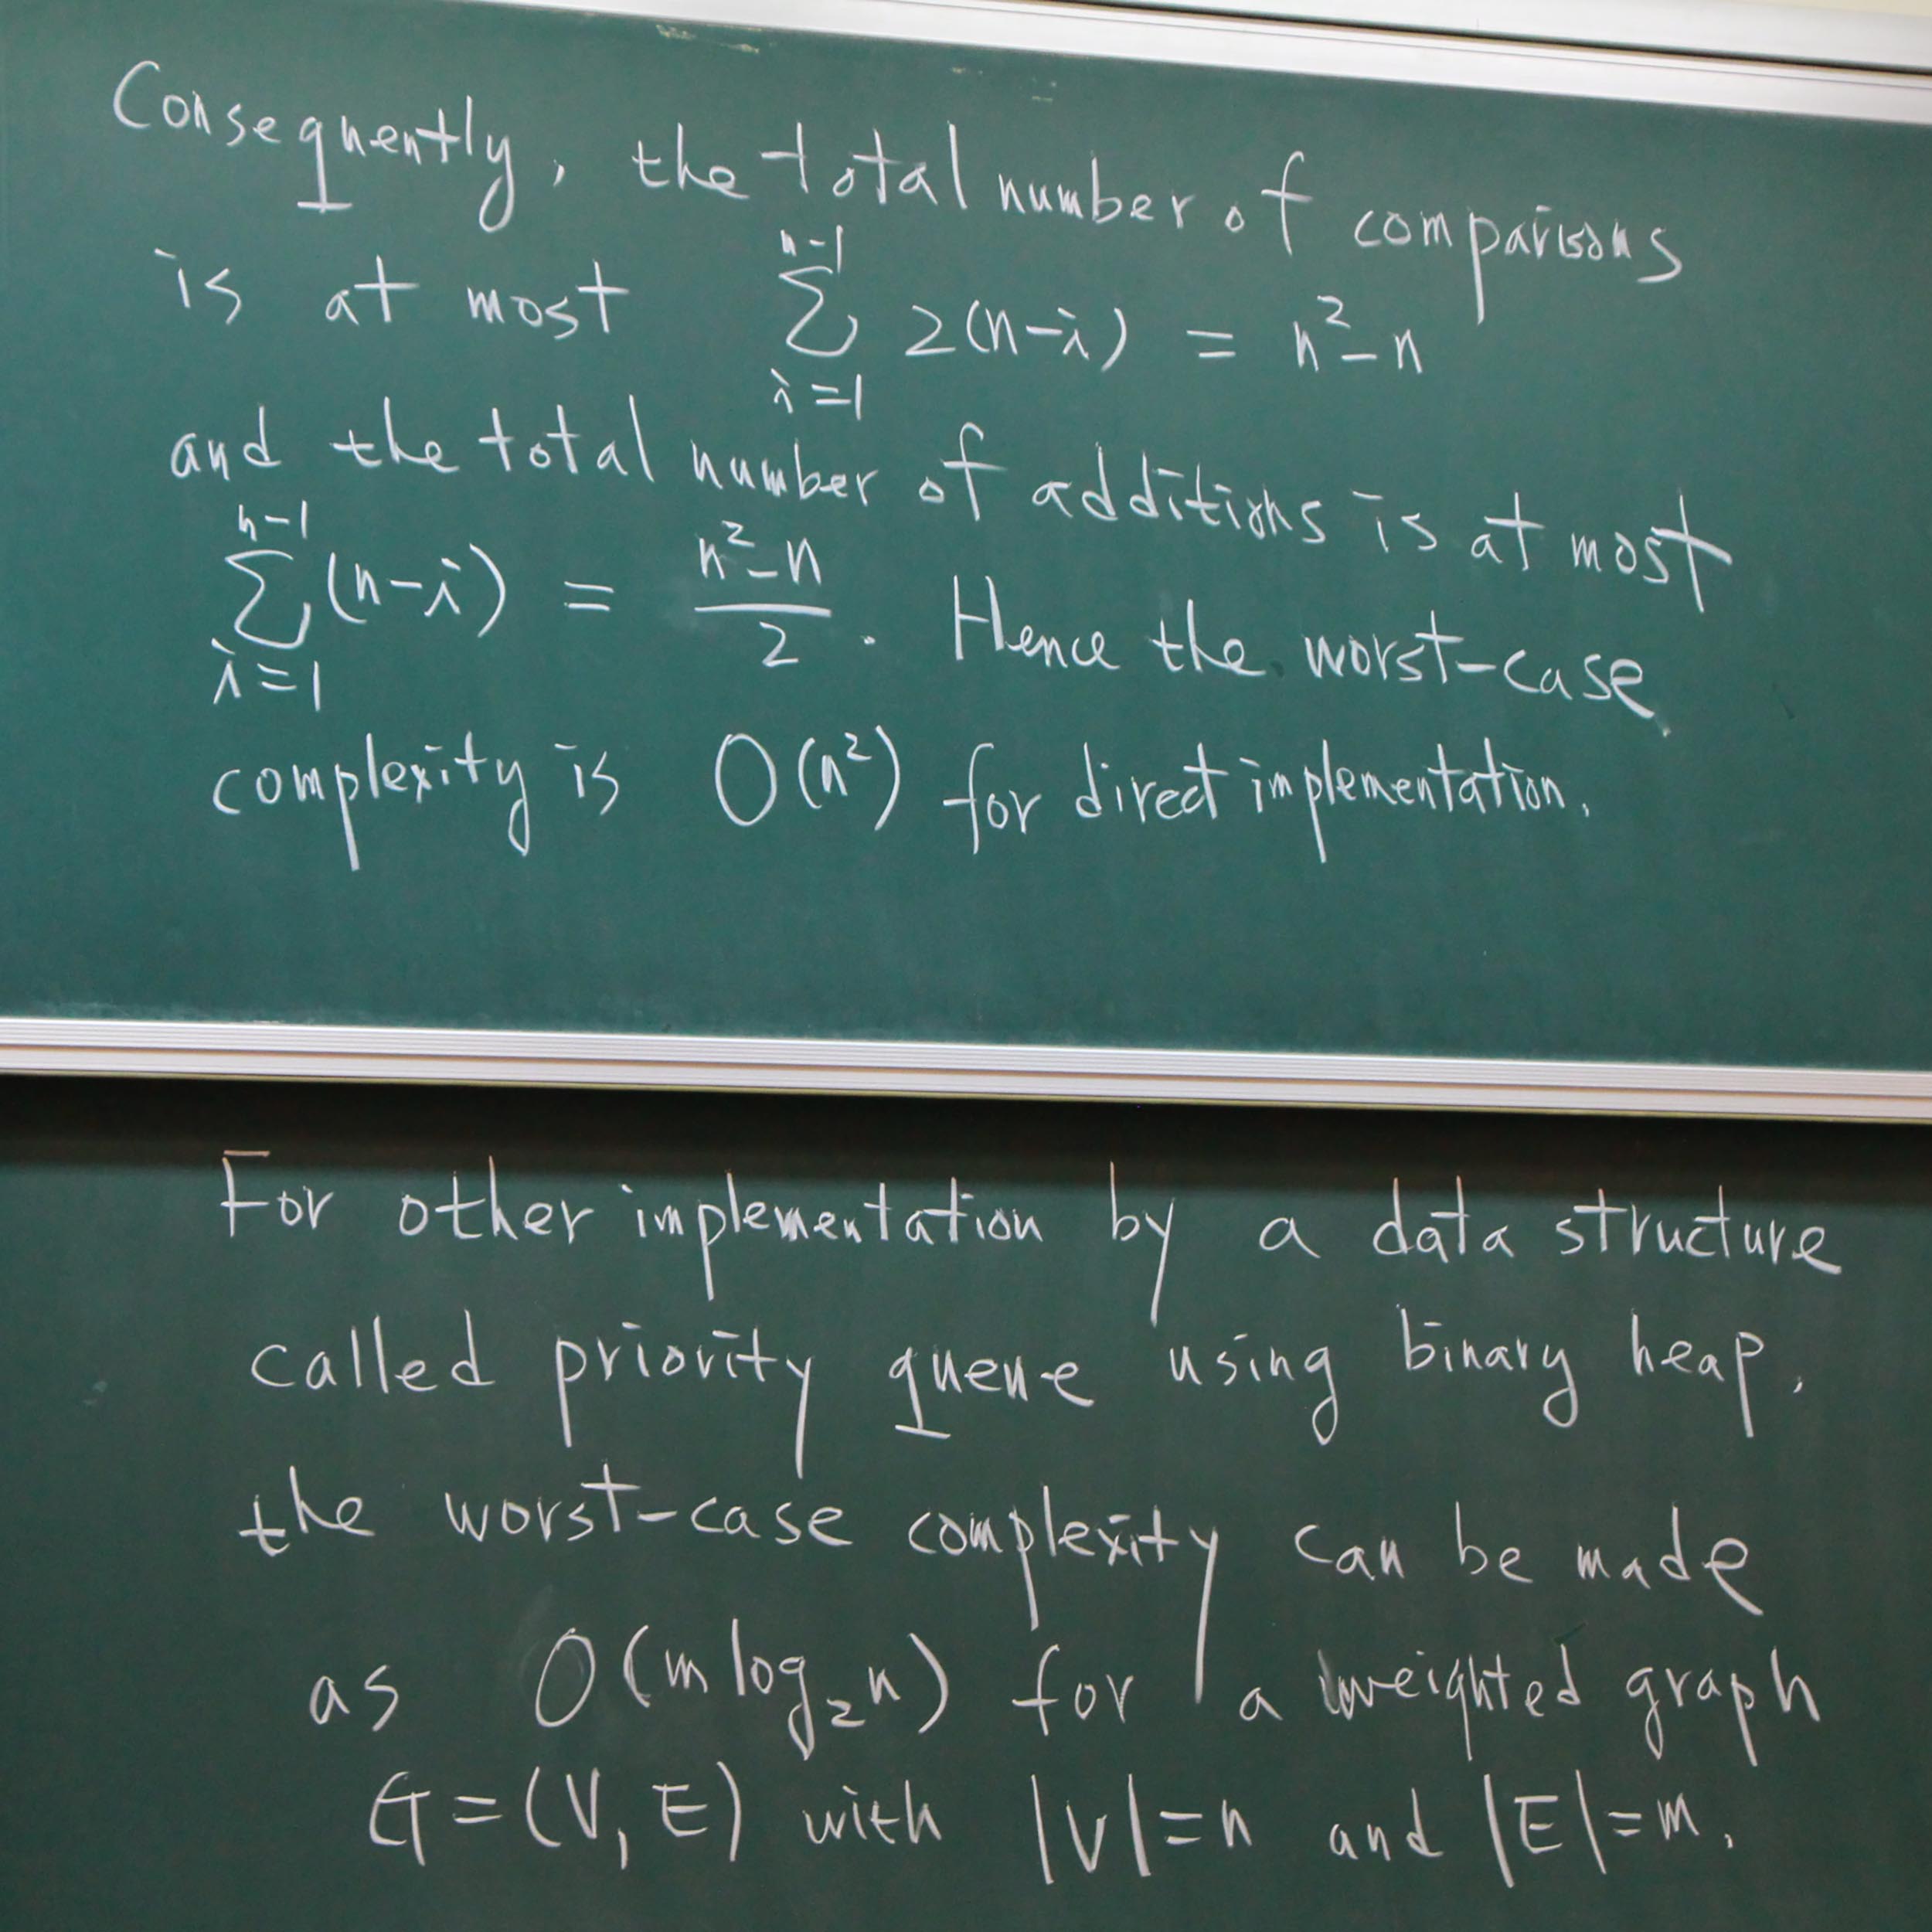 Consequently, the total number of comparisons
is at most \sum_{i=1}^{n-1} 2(n-i) = n^2-n
and the total number of additions is at most
\sum_{i=1}^{n-1} (n-i) = \frac{n^2-n}{2}. Hence the worst-case
complexity is O(n^2) for direct implementation.
For other implementation by a data structure
called priority queue using binary heap,
the worst-case complexity can be made
as O(m log_2 n) for a weighted graph
G=(V, E) with |V|=n and |E|=m.